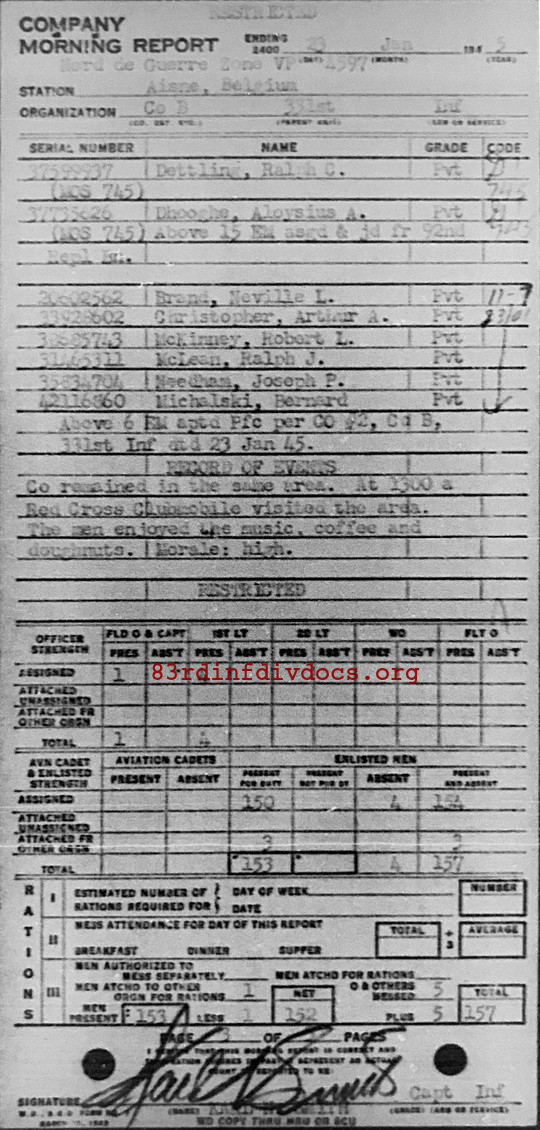 RESTRICTED
COMPANY
MORNING REPORT
ENDING 2400 23 Jan 194 5
(DAY) (MONTH) (YEAR)
Nord de Guerre Zone VP 4597
STATION Aisne, Belgium
ORGANIZATION Co B 331st Inf
(CO. DET. ETC.) (PARENT UNIT) (ARM OR SERVICE)
SERIAL NUMBER NAME GRADE CODE
37599937 Dettling, Ralph C. Pvt D
(MOS 745) 745
37735626 Dhooghe, Aloysius A. Pvt D
(MOS 745) Above 15 EM asgd & jd fr 92nd 745
Repl Bn.
20602562 Brand, Neville L. Pvt 11-7
33928602 Christopher, Arthur A. Pvt
38685743 McKinney, Robert L. Pvt
31465311 McLean, Ralph J. Pvt
35834704 Needham, Joseph P. Pvt
42116860 Michalski, Bernard Pvt
Above 6 EM aptd Pfc per CO #2, Co B,
331st Inf dtd 23 Jan 45.
RECORD OF EVENTS
Co remained in the same area. At 1300 a
Red Cross Clubmobile visited the area.
The men enjoyed the music, coffee and
doughnuts. Morale: high.
RESTRICTED
A
OFFICER STRENGTH FLD O & CAPT 1ST LT 2D LT WO FLT O
PRES ABS'T PRES ABS'T PRES ABS'T PRES ABS'T PRES ABS'T
ASSIGNED 1
83rdinfdivdocs.org
ATTACHED UNASSIGNED
ATTACHED FR OTHER ORGN
TOTAL 1 4
AVN CADET & ENLISTED STRENGTH AVIATION CADETS ENLISTED MEN
PRESENT ABSENT PRESENT FOR DUTY PRESENT NOT FOR DY ABSENT PRESENT AND ABSENT
ASSIGNED 150 4 154
ATTACHED UNASSIGNED
ATTACHED FR OTHER ORGN 3 3
TOTAL 153 4 157
RATIONS
I ESTIMATED NUMBER OF RATIONS REQUIRED FOR DAY OF WEEK DATE NUMBER
II MESS ATTENDANCE FOR DAY OF THIS REPORT TOTAL ÷ 3 AVERAGE
BREAKFAST DINNER SUPPER
III MEN AUTHORIZED TO MESS SEPARATELY MEN ATCHD FOR RATIONS
MEN ATCHD TO OTHER ORGN FOR RATIONS 1 NET O & OTHERS MESSED 5 TOTAL
MEN PRESENT 153 LESS 1 152 PLUS 5 157
PAGE 3 OF 3 PAGES
SIGNATURE Capt Inf
(NAME) (GRADE) (ARM OR SERVICE)
WD COPY THRU MRU OR SCU